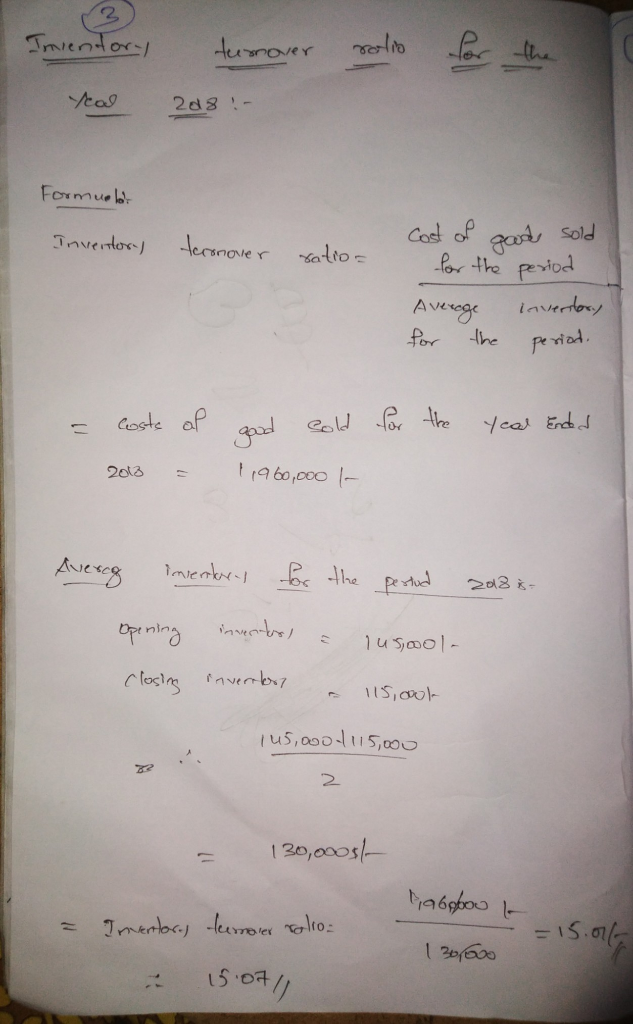 3
Inventory turnover ratio for the
Year 2018 :-
Formula:-
Inventory turnover ratio = Cost of goods sold
for the period
Average inventory
for the period.
= Costs of good sold for the year Ended
2018 = 1,960,000/-
Average inventory for the period 2018 :-
Opening inventory = 145,000/-
Closing inventory = 115,000/-
∴ 145,000+115,000
2
= 130,000/-
= Inventory turnover ratio = 1,960,000/- = 15.07//
130,000
= 15.07//